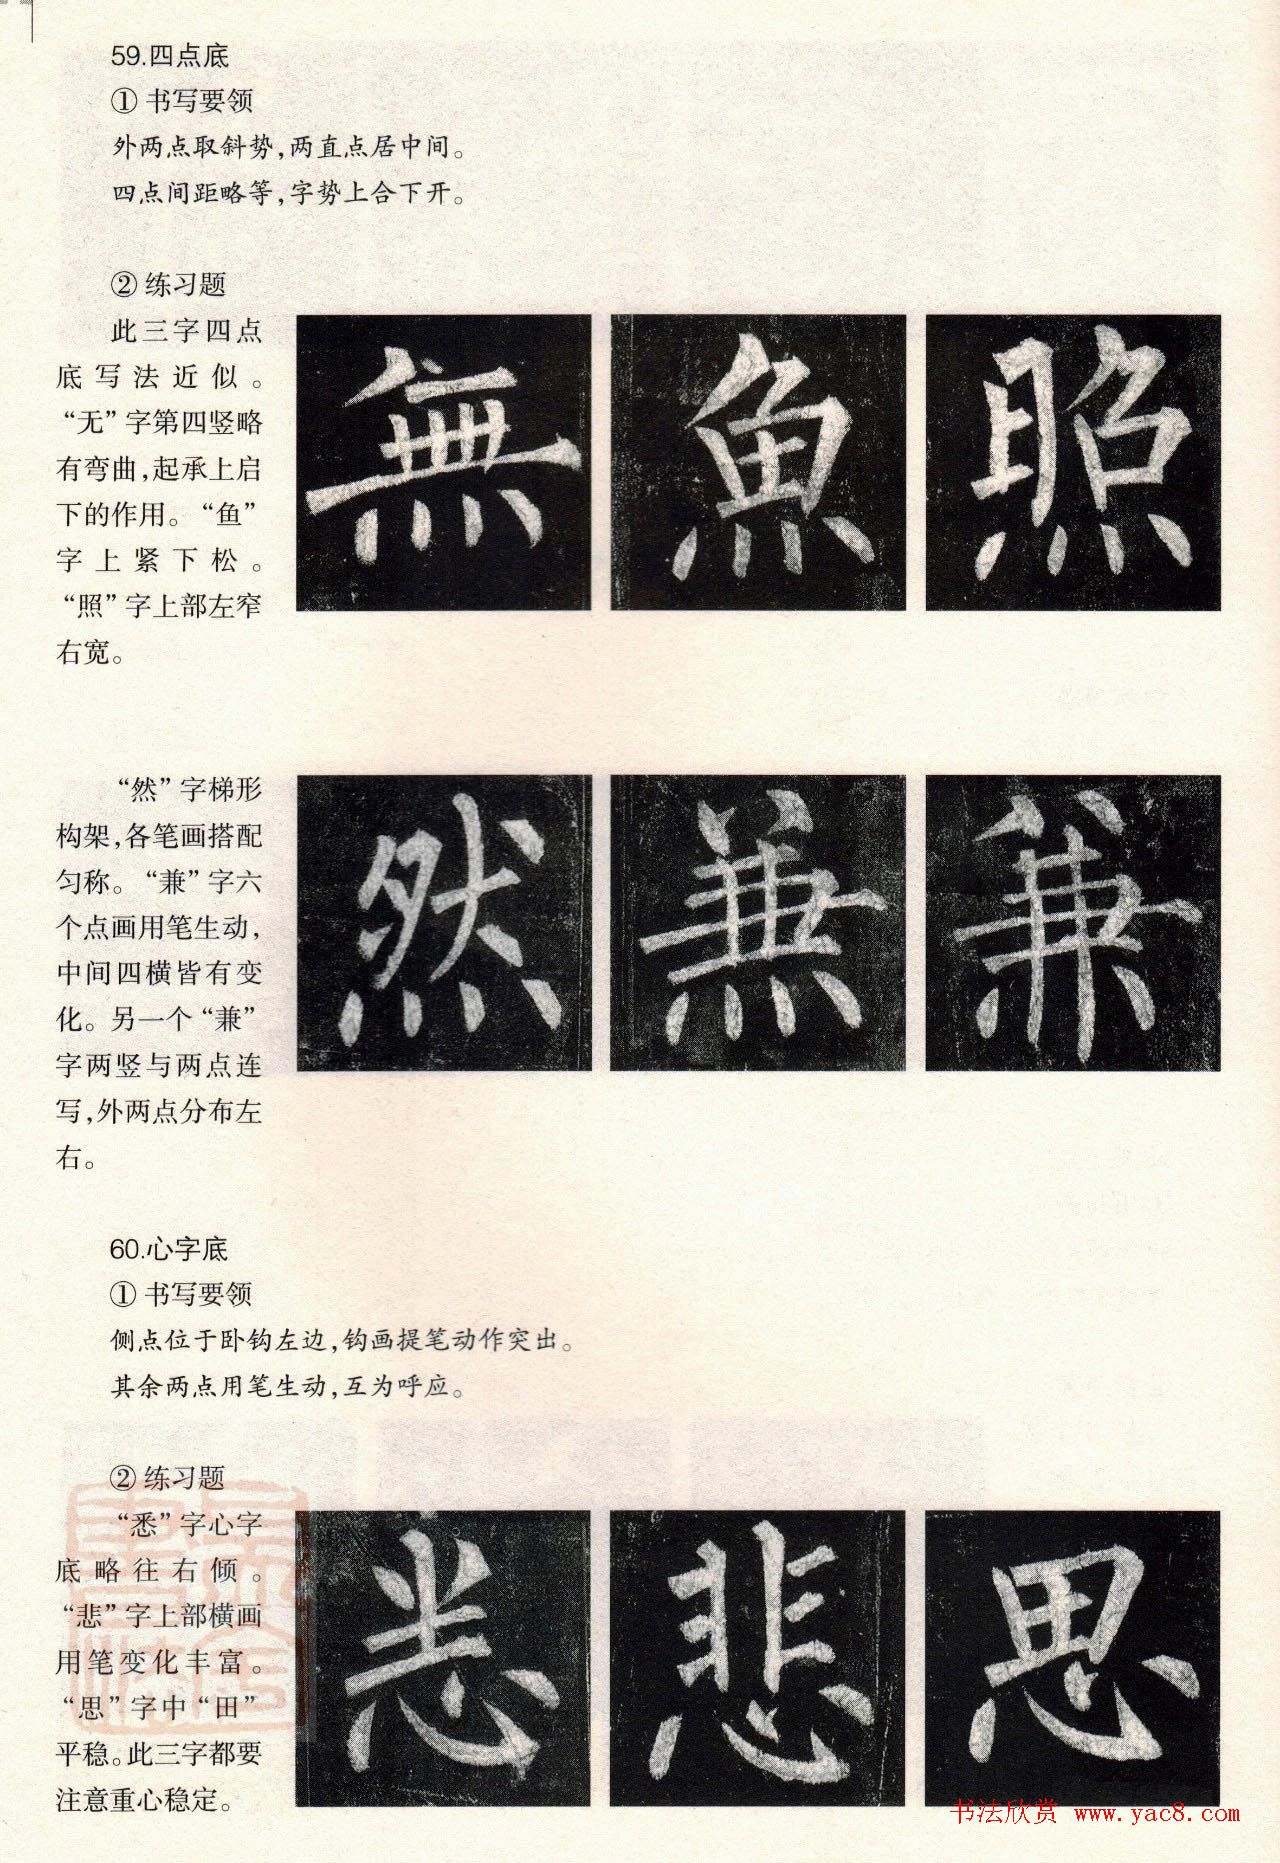 59.四点底
① 书写要领
外两点取斜势，两直点居中间。
四点间距略等，字势上合下开。
② 练习题
此三字四点
底写法近似。
“无”字第四竖略
有弯曲，起承上启
下的作用。“鱼”
字上紧下松。
“照”字上部左窄
右宽。
無 魚 照
“然”字梯形
构架，各笔画搭配
匀称。“兼”字六
个点画用笔生动，
中间四横皆有变
化。另一个“兼”
字两竖与两点连
写，外两点分布左
右。
然 兼 兼
60.心字底
① 书写要领
侧点位于卧钩左边，钩画提笔动作突出。
其余两点用笔生动，互为呼应。
② 练习题
“悉”字心字
底略往右倾。
“悲”字上部横画
用笔变化丰富。
“思”字中“田”
平稳。此三字都要
注意重心稳定。
悉 悲 思
书法欣赏 www.yac8.com